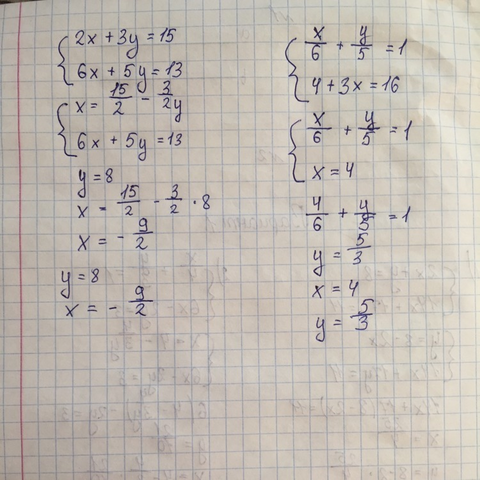 2x + 3y = 15
6x + 5y = 13
x = 15/2 - 3/2y
6x + 5y = 13
y = 8
x = 15/2 - 3/2 · 8
x = - 9/2
y = 8
x = - 9/2
x/6 + y/5 = 1
4 + 3x = 16
x/6 + y/5 = 1
x = 4
4/6 + y/5 = 1
y = 5/3
x = 4
y = 5/3